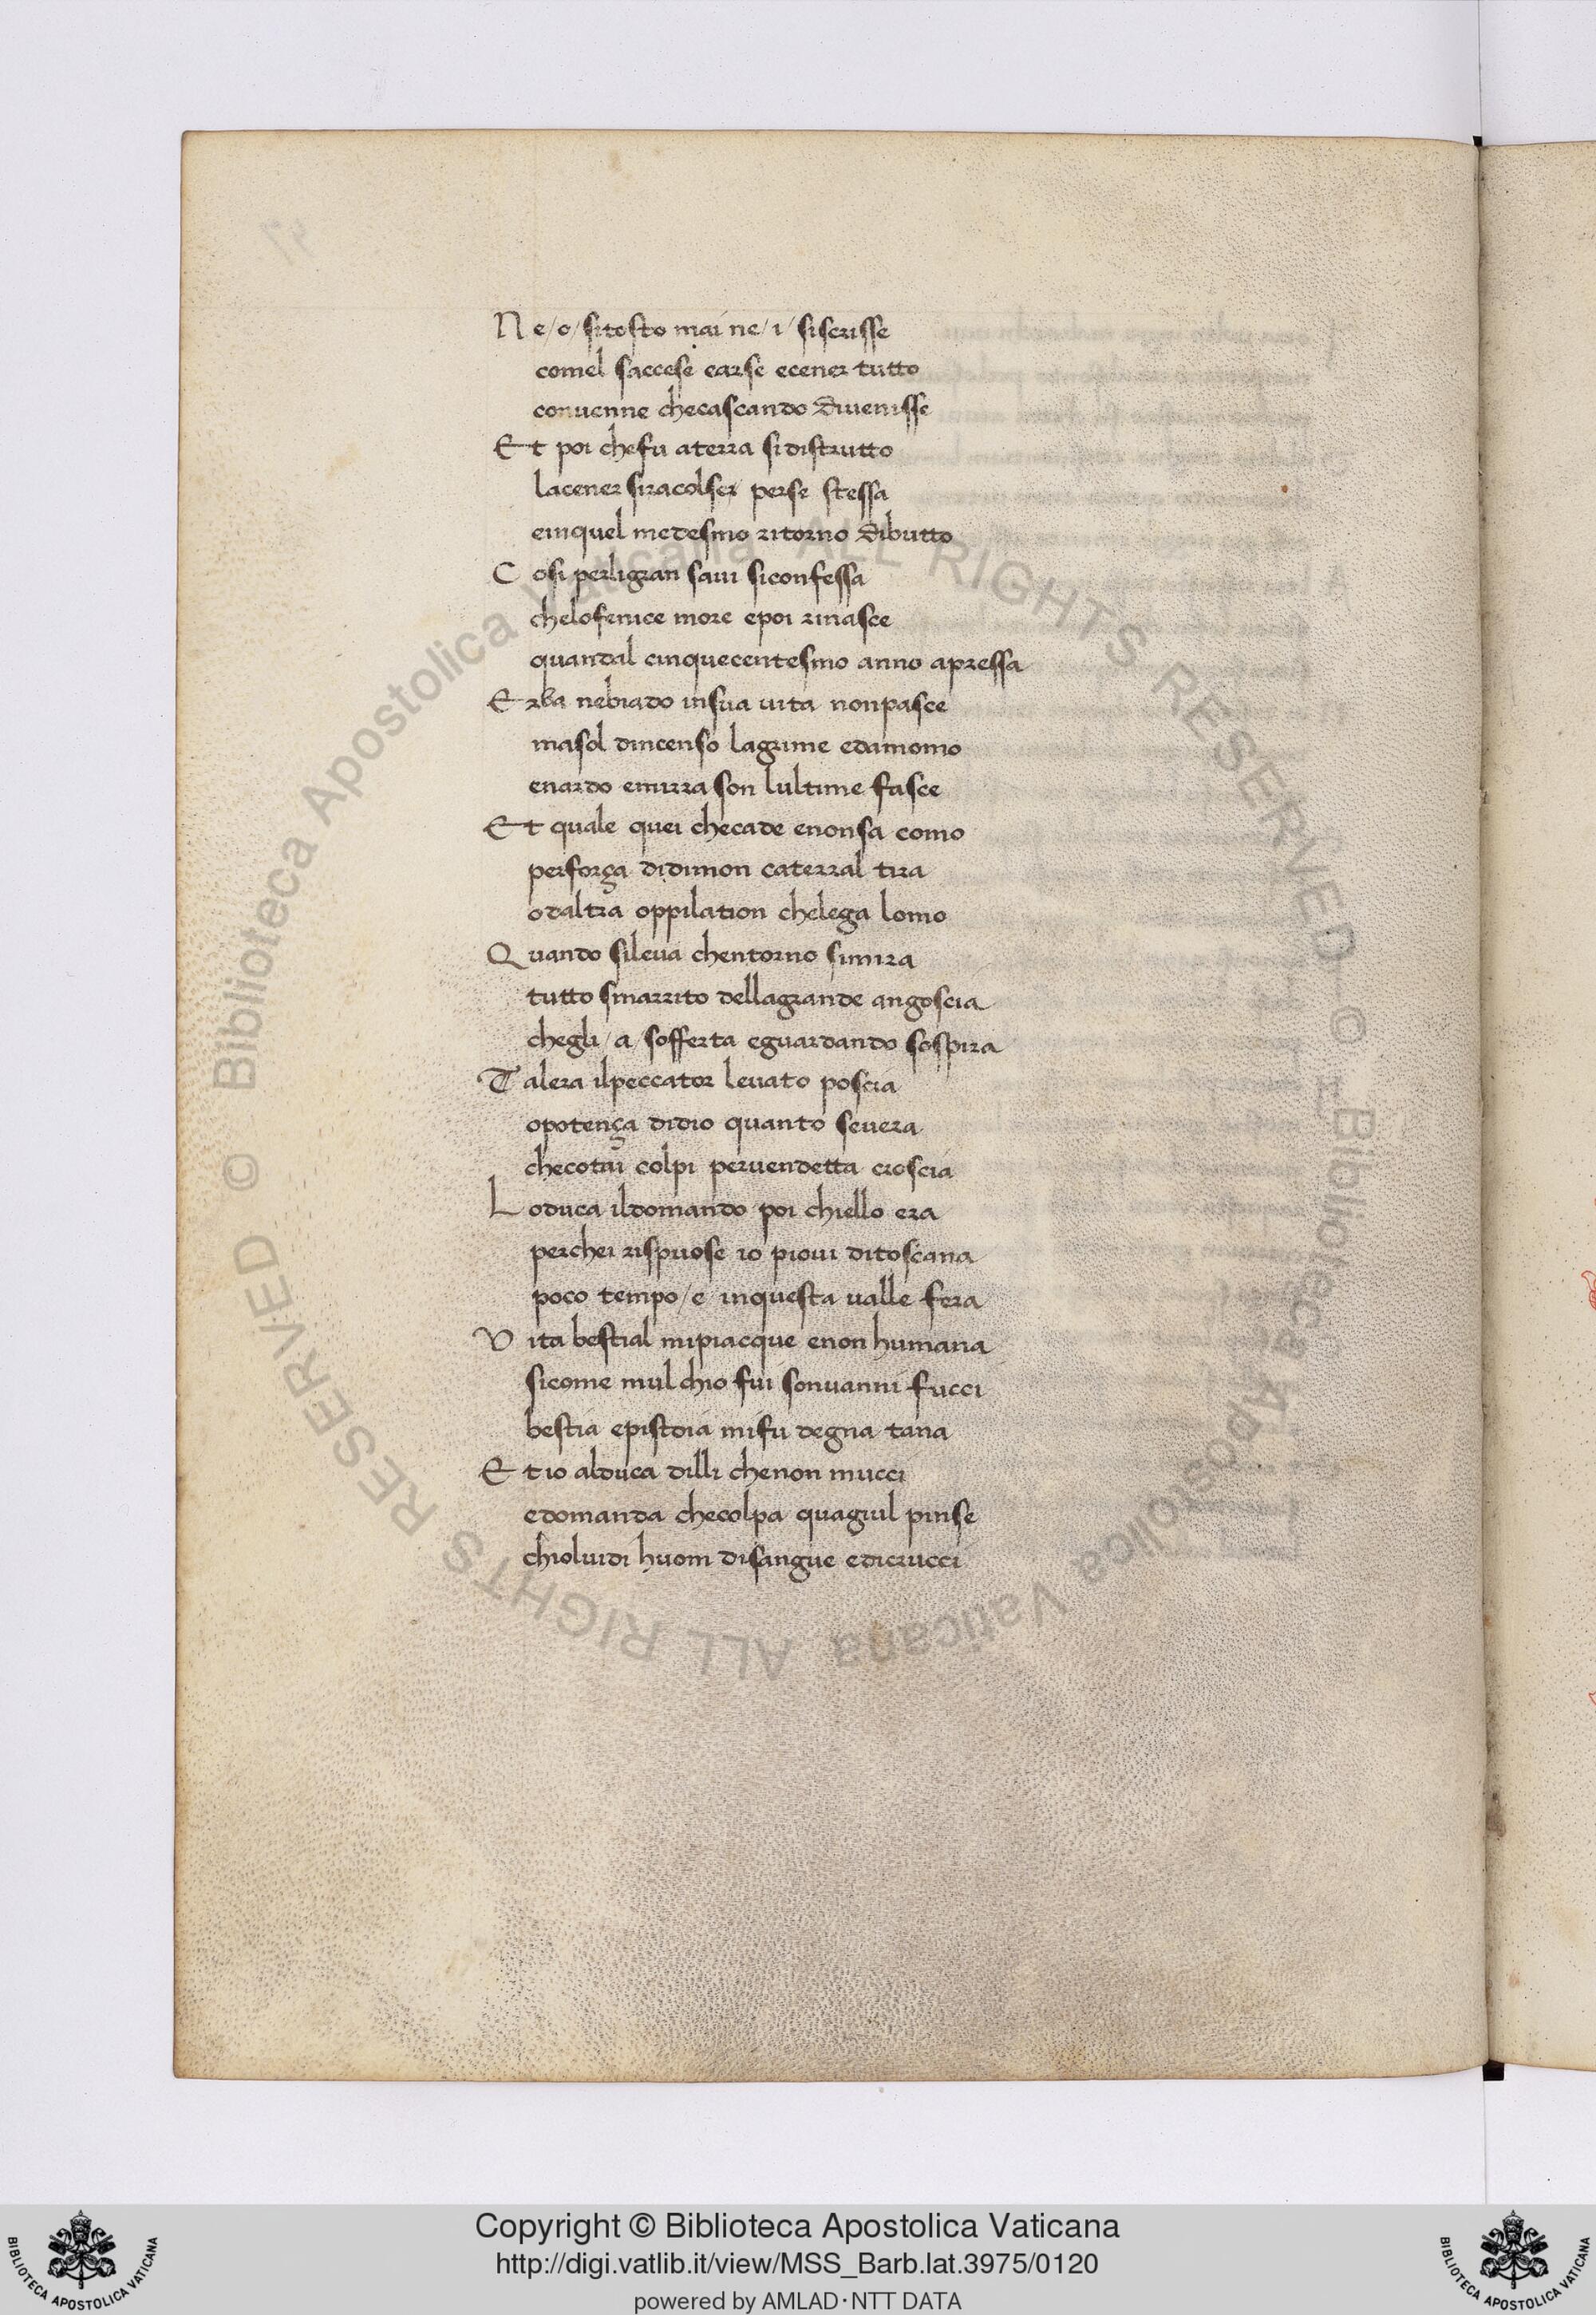 N e/o/ sitosto mai ne/i/ siscrisse
comel saccese earse ecener tutto
convenne checascando divenisse
E t poi chefu aterra sidistrutto
lacener siracolser perse stessa
einquel medesmo ritorno dibutto
C osi perligran savi siconfessa
chelofenice more epoi rinasce
quandal cinquecentesmo anno apressa
E rba nebiado insua vita nonpasce
masol dincenso lagrime edamomo
enardo emirra son lultime fasce
E t quale quei checade enonsa como
perforça didimon caterral tira
odaltra oppilation chelega lomo
Q uando sileva chentorno simira
tutto smarrito dellagrande angoscia
chegli/a/sofferta eguardando sospira
T alera ilpeccator levato poscia
opotença didio quanto severa
checotai colpi pervendetta croscia
L oduca ildomando poi chiello era
perchei rispuose io piovi ditoscana
poco tempo/e inquesta valle fera
V ita bestial mipiacque enon humana
sicome mul chio fui sonvanni fucci
bestia epistoia mifu degna tana
E t io alduca dilli chenon mucci
edomanda checolpa quagiul pinse
chiolvidi huom disangue edicrucci
© Biblioteca Apostolica Vaticana ALL RIGHTS RESERVED
© Biblioteca Apostolica Vaticana ALL RIGHTS RESERVED
Copyright © Biblioteca Apostolica Vaticana
http://digi.vatlib.it/view/MSS_Barb.lat.3975/0120
powered by AMLAD·NTT DATA
BIBLIOTECA APOSTOLICA VATICANA
BIBLIOTECA APOSTOLICA VATICANA